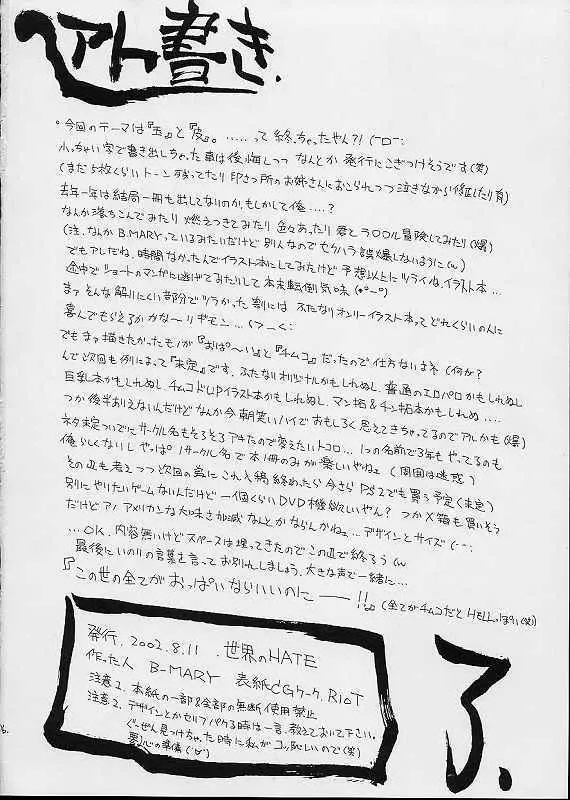 アト書き.
°今回のテーマは『玉』と『皮』。……って終っちゃったやん?! (ーロー;
小っちゃい字で書き出しちゃった事は後悔しつつ なんとか発行にこぎつけそうです(笑)
(まだ5枚くらいトーン残ってたり 印さつ所のお姉さんにおこられつつ泣きながら修正したり育)
去年一年は結局一冊も出してないのか、もしかして俺....?
なんか落ちこんでみたり 燃えつきてみたり 色々あったり 愛とラ○○ル冒険してみたり(爆)
(注、なんか B.MARYっているみたいだけど 別人なのでセクハラ誤爆しないように(w)
でもアレだね、時間なかったんでイラスト本にしてみたけど 予想以上にツライね、イラスト本…
途中でショートのマンガに逃げてみたりして本末転倒気味(*°ー°)
まァそんな解りにくい部分でツラかった割には ふたなりオンリーイラスト本ってどれくらいの人に
喜んでもらえるかかな〜りギモン…
でもまァ描きたかったモノが『おぱ〜い』と『チムコ』だったので仕方ないよネ(何が?
んで次回も例によって『未定』です。ふたなりオリジナルかもしれぬし、普通のエロパロかもしれぬし
巨乳本かもしれぬし チムコドUPイラスト本かもしれぬし、マン拓&チン拓本かもしれぬ....
つか後半ありえないんだけど なんか今朝笑いハイでおもしろく思えてきちゃってるのでアルかも(爆)
ネタ未定ついでにサークル名もそろそろアキたので変えたいトコロ… 1つの名前で3年もやってるのも
俺らしくないし やっぱ1サークル名で本1冊のみが楽しいやねェ (周囲は迷惑)
その辺も考えつつ次回の為に これ入稿終わったら今さらPS2でも買う予定(未定)
別にやりたいゲームないんだけど 一個くらいDVD機欲しいやん? つかX箱も買いそう
だけどアノアメリカンな大味さ加減なんとかならんかねェ…デザインとサイズ(ー;
…OK、内容無いけどスペースは埋ってきたのでこの辺で終ろう(w
最後にいのりの言葉を言ってお別れしましょう、大きな声で一緒に…
『この世の全てがおっぱいならいいのにーー!!』 (全てがチムコだとHELLっぽい(笑)
発行. 2002.8.11 .世界のHATE
作った人 B-MARY 表紙CGワーク. RIOT
注意1. 本紙の一部&全部の無断使用禁止
注意2. デザインとかセルフパクる時は一言、教えておいて下さい。
ぐーぜん見つけちゃった時に私がコッ恥しいので(笑)
了.